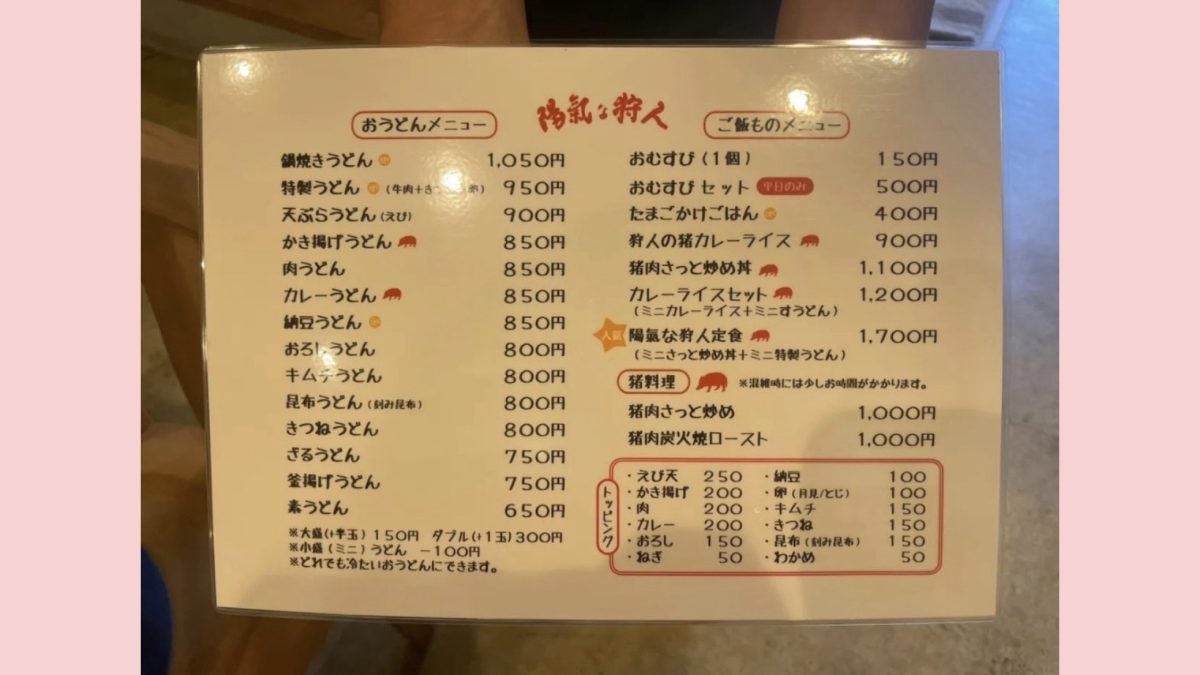 陽氣な狩人
おうどんメニュー
鍋焼きうどん 1,050円
特製うどん (牛肉+き 卵) 950円
天ぷらうどん(えび) 900円
かき揚げうどん 850円
肉うどん 850円
カレーうどん 850円
納豆うどん 850円
おろしうどん 800円
キムチうどん 800円
昆布うどん(刻み昆布) 800円
きつねうどん 800円
ざるうどん 750円
釜揚げうどん 750円
素うどん 650円
※大盛(+半玉)150円 ダブル(+1玉)300円
※小盛(ミニ)うどん −100円
※どれでも冷たいおうどんにできます。
ご飯ものメニュー
おむすび(1個) 150円
おむすびセット 平日のみ 500円
たまごかけごはん 400円
狩人の猪カレーライス 900円
猪肉さっと炒め丼 1,100円
カレーライスセット 1,200円
(ミニカレーライス+ミニすうどん)
人氣 陽氣な狩人定食 1,700円
(ミニさっと炒め丼+ミニ特製うどん)
猪料理 ※混雑時には少しお時間がかかります。
猪肉さっと炒め 1,000円
猪肉炭火焼ロースト 1,000円
トッピング
・えび天 250 ・納豆 100
・かき揚げ 200 ・卵(月見/とじ) 100
・肉 200 ・キムチ 150
・カレー 200 ・きつね 150
・おろし 150 ・昆布(刻み昆布) 150
・ねぎ 50 ・わかめ 50